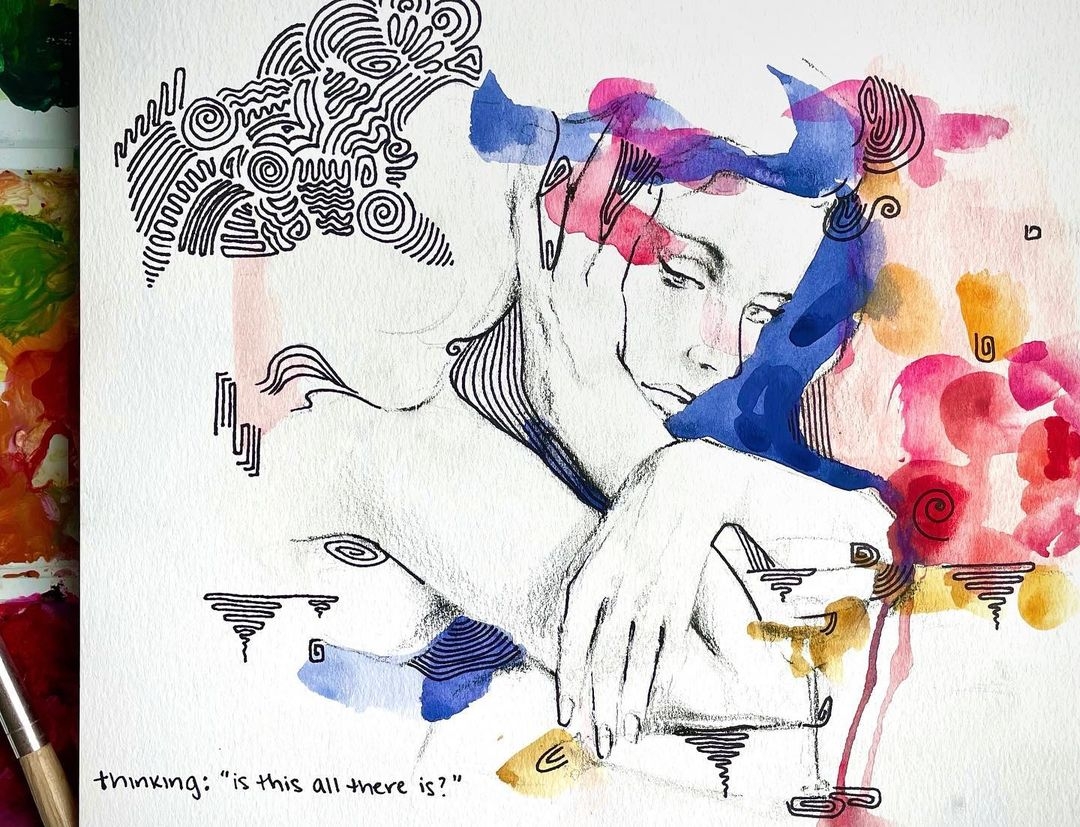 thinking: "is this all there is?"